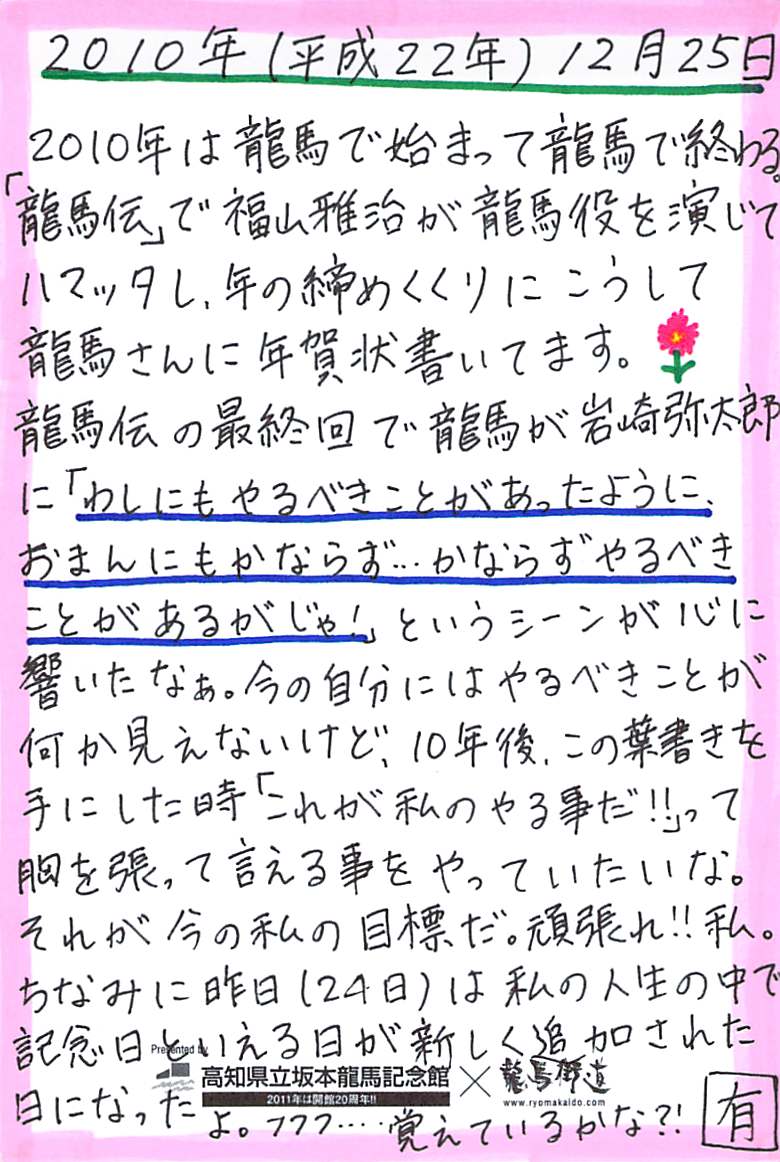 2010年(平成22年) 12月25日
2010年は龍馬で始まって龍馬で終わる。
「龍馬伝」で福山雅治が龍馬役を演じて
ハマッタし、年の締めくくりにこうして
龍馬さんに年賀状書いてます。
龍馬伝の最終回で龍馬が岩崎弥太郎
に「わしにもやるべきことがあったように、
おまんにもかならず…かならずやるべき
ことがあるがじゃ!」というシーンが心に
響いたなぁ。今の自分にはやるべきことが
何か見えないけど、10年後、この葉書きを
手にした時「これが私のやる事だ!!」って
胸を張って言える事をやっていたいな。
それが今の私の目標だ。頑張れ!!私。
ちなみに昨日(24日)は私の人生の中で
記念日といえる日が新しく追加された
Presented by
高知県立坂本龍馬記念館×龍馬街道
2011年は開館20周年!!
www.ryomakaido.com
日になったよ。フフフ‥‥覚えているかな?!
有